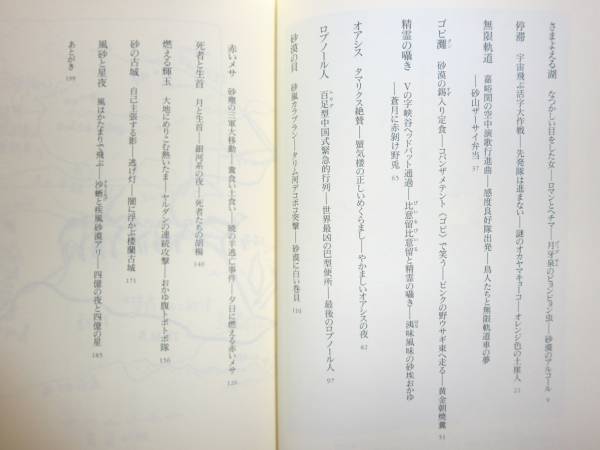 さまよえる湖 なつかしい目をした女――ロマンとヘチマ――月牙泉のピョンピョン虫――砂漠のアルコール 9
停滞 宇宙飛ぶ活字大作戦――先発隊は進まない――謎のオカヤマキョーコー――オレンジ色の土崖人 21
無限軌道 嘉峪関の空中演歌行進曲――感度良好隊出発――鳥人たちと無限軌道車の夢
――砂山ザーサイ弁当 37
ゴビ灘 砂漠の鍋入り定食――コパンザメテント〈ゴビ〉で笑う――ピンクの野ウサギ東へ走る――黄金朝焼糞 51
精霊の囁き Vの字峡谷ヘッドバット通過――比意留比意留と精霊の囁き――洟味風味の砂埃おかゆ
――蒼月に赤剝け野兎 65
オアシス タマリクス絶賛――蜃気楼の正しいめくらまし――やかましいオアシスの夜 82
ロプノール人 百足型中国式緊急的行列――世界最凶の巴型便所――最後のロプノール人 97
砂漠の貝 砂嵐カラブラン――タリム河デコボコ突撃――砂漠に白い巻貝 110
赤いメサ 砂塵の三軍大移動――糞食い土食い――暁の羊逃亡事件――夕日に燃える赤いメサ 126
死者と生首 月と生首――銀河系の夜――死者たちの胡楊 140
燃える輝玉 大地にめりこむ熱いたま――ヤルダンの連続攻撃――おかゆ腹トボトボ隊 156
砂の古城 自己主張する影――逃げ灯――闇に浮かぶ楼蘭古城 171
風砂と星夜 風はかたまりで飛ぶ――沙蜥と疾風砂漠アリ――四億の夜と四億の星 185
あとがき 199